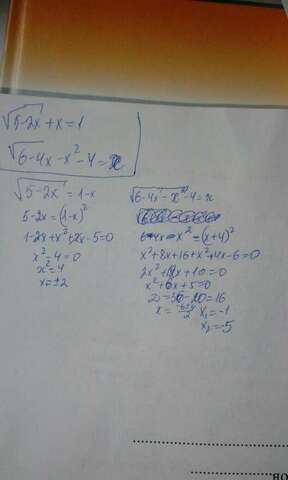 √5-2x + x = 1
√6-4x-x² -4 = x
√5-2x = 1-x
5-2x = (1-x)²
1-2x+x²+2x-5=0
x²-4=0
x²=4
x=±2
√6-4x-x² -4=x
6-4x-x²=(x+4)²
x²+8x+16+x²+4x-6=0
2x²+12x+10=0
x²+6x+5=0
D=36-20=16
x = -6±4/2 x₁=-1
x₂=-5